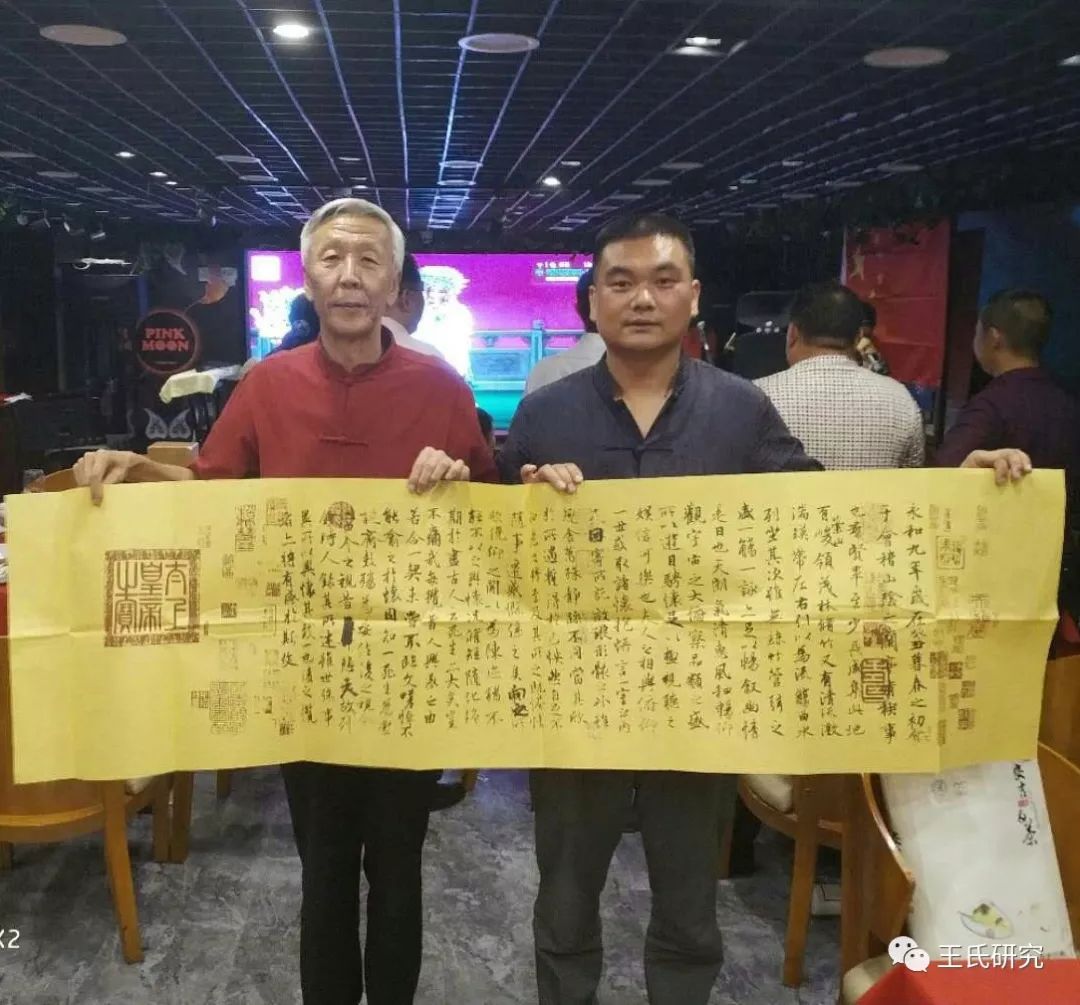 PINK
MOON
永和九年歲在癸丑暮春之初會
于會稽山陰之蘭亭脩稧事
也羣賢畢至少長咸集此地
有崇山峻領茂林脩竹又有清流激
湍暎帶左右引以為流觴曲水
列坐其次雖無絲竹管弦之
盛一觴一詠亦足以暢叙幽情
是日也天朗氣清惠風和暢仰
觀宇宙之大俯察品類之盛
所以遊目騁懷足以極視聽之
娛信可樂也夫人之相與俯仰
一世或取諸懷抱悟言一室之內
或因寄所託放浪形骸之外雖
趣舍萬殊靜躁不同當其欣
於所遇暫得於己快然自足不
知老之將至及其所之既惓情
隨事遷感慨係之矣向之所
欣俛仰之間以為陳迹猶不
能不以之興懷況脩短隨化終
期於盡古人云死生亦大矣豈
不痛哉每攬昔人興感之由
若合一契未嘗不臨文嗟悼不
能喻之於懷固知一死生為虛
誕齊彭殤為妄作後之視今
亦由今之視昔悲夫故列
叙時人錄其所述雖世殊事
異所以興懷其致一也後之攬
者亦將有感於斯文
太上
皇帝
之寶
X2
王氏研究